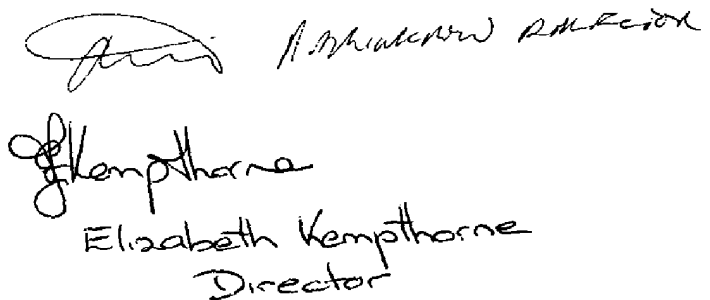 DIRECTOR
EKempthorne
Elizabeth Kempthorne
Director